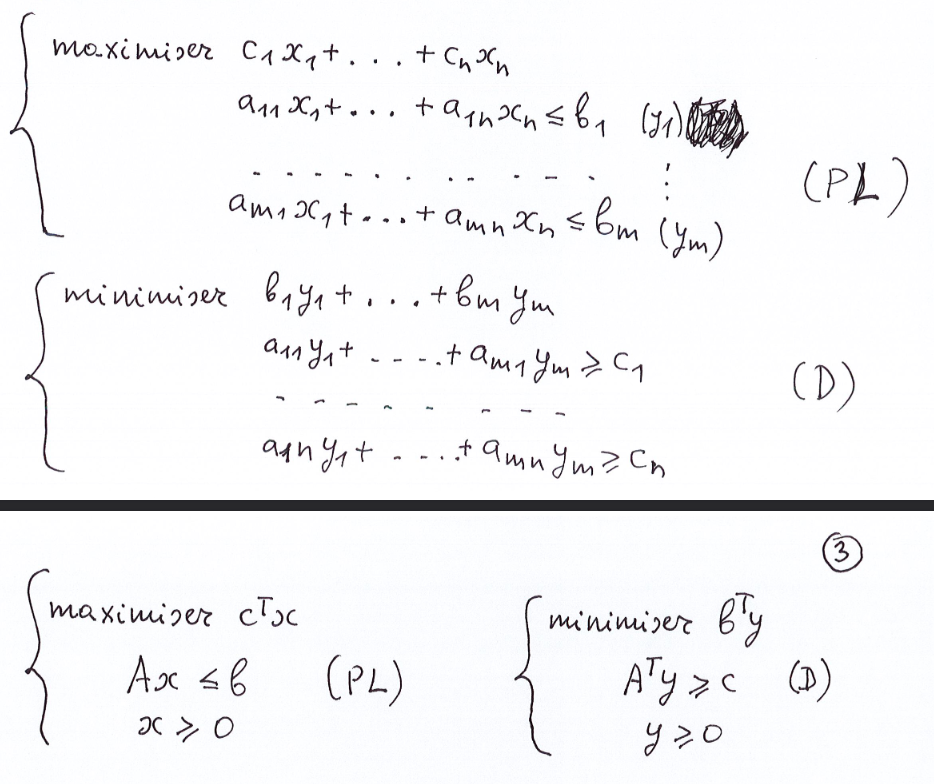 maximiser c₁x₁+...+cₙxₙ
a₁₁x₁+...+a₁ₙxₙ ≤ b₁ (y₁)
. . . . . . . . . . ⋮
aₘ₁x₁+...+aₘₙxₙ ≤ bₘ (yₘ)
(PL)
minimiser b₁y₁+...+bₘyₘ
a₁₁y₁+....+aₘ₁yₘ ≥ c₁
(D)
- - - - - - - -
a₁ₙy₁+.....+aₘₙyₘ ≥ cₙ
③
maximiser cᵀx
Ax ≤ b (PL)
x ≥ 0
minimiser bᵀy
Aᵀy ≥ c (D)
y ≥ 0